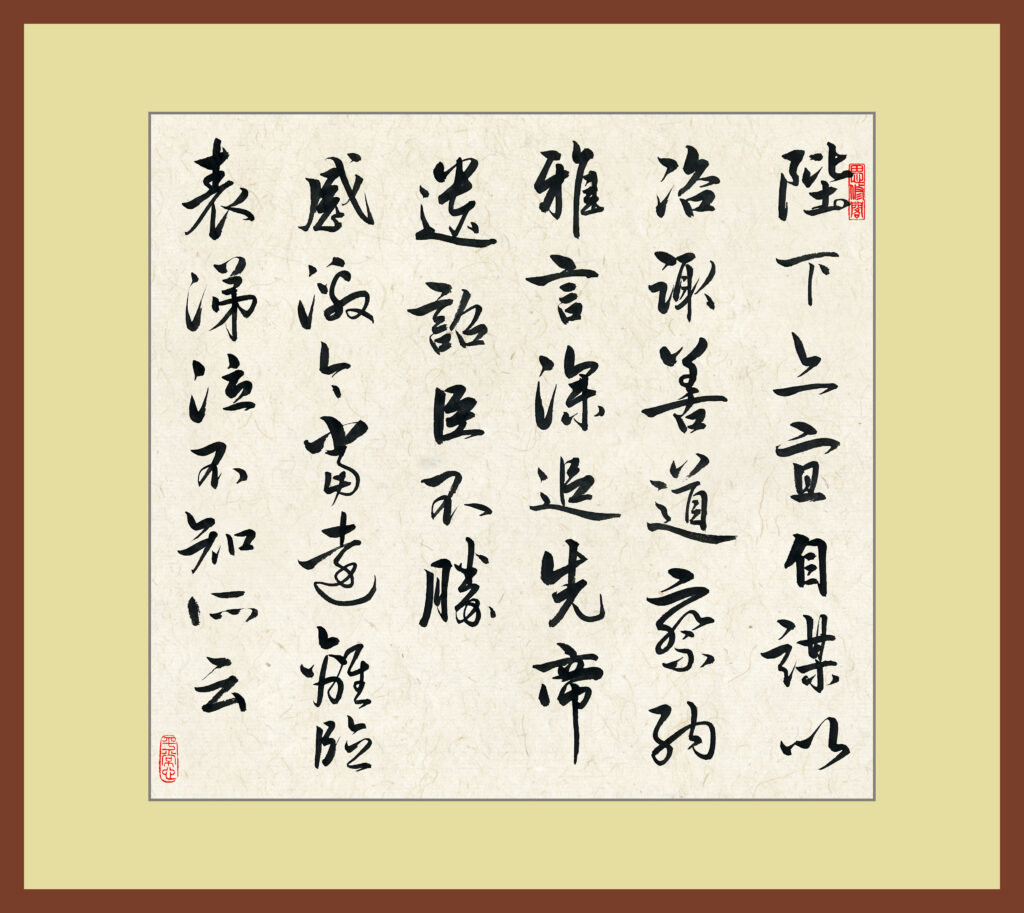 陛下亦宜自謀以
咨諏善道察納
雅言深追先帝
遺詔臣不勝
感激今當遠離臨
表涕泣不知所云